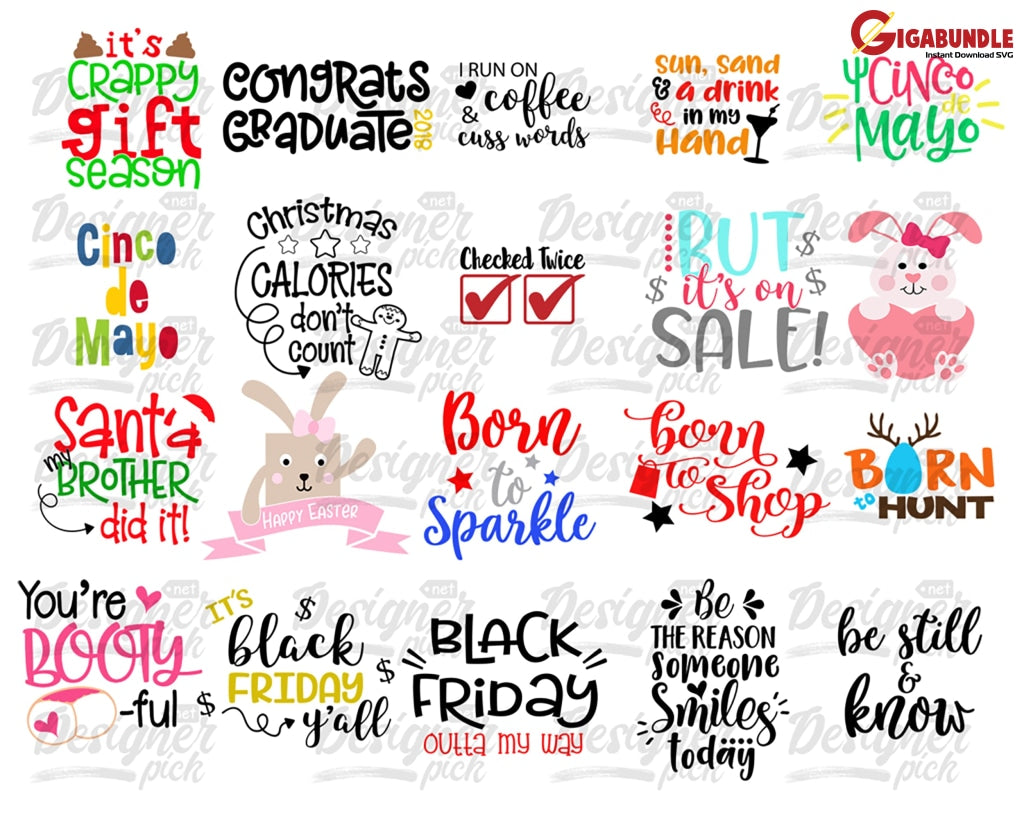 GIGABUNDLE
Instant Download SVG
it's
CRAPPY
gift
season
Congrats
GRADUATE
2018
I RUN ON
coffee
&
cuss words
sun, sand
& a drink
in my
Hand
CINCO
de
MAYO
Cinco
de
Mayo
Christmas
CALORIES
don't
count
Checked Twice
BUT
it's on
SALE!
Santa
my
BROTHER
did it!
Happy Easter
Born
to
Sparkle
born
to
Shop
BORN
to HUNT
You're
BOOTY
-ful
IT'S
black
FRIDAY
y'all
BLACK
FRIDAY
outta my way
Be
THE REASON
Someone
Smiles
today
be still
&
know
Designer
.net
pick